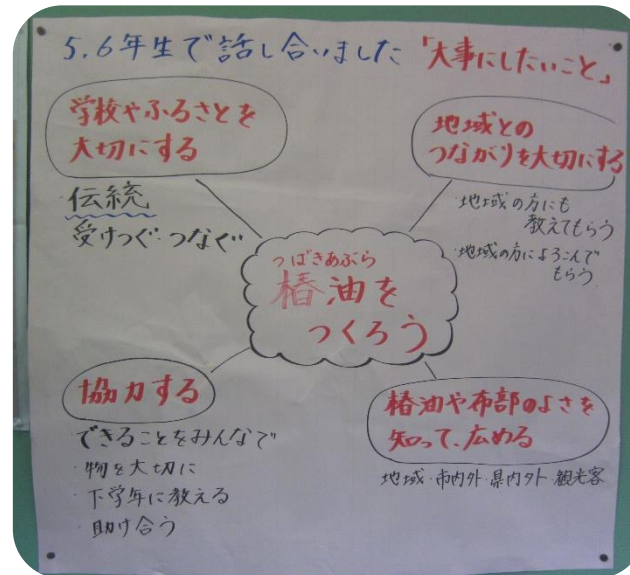 5.6年生で話し合いました「大事にしたいこと」
学校やふるさとを
大切にする
伝統
受けつぐ・つなぐ
地域との
つながりを大切にする
・地域の方にも
教えてもらう
・地域の方によろこんで
もらう
つばきあぶら
椿油を
つくろう
協力する
できることをみんなで
・物を大切に
・下学年に教える
・助け合う
椿油や布部のよさを
知って、広める
地域・市内外・県内外・観光客